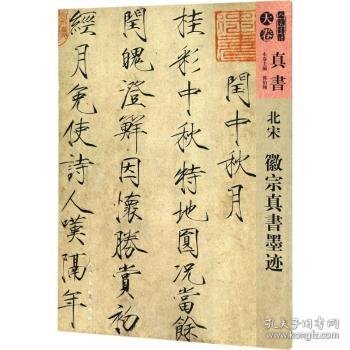 卷
真書
北宋
徽宗真書墨迹
閏中秋月
桂彩中秋特地圓况當餘
閏魄澄鮮因懷勝賞初
經月免使詩人嘆隔年
孔夫子旧书网